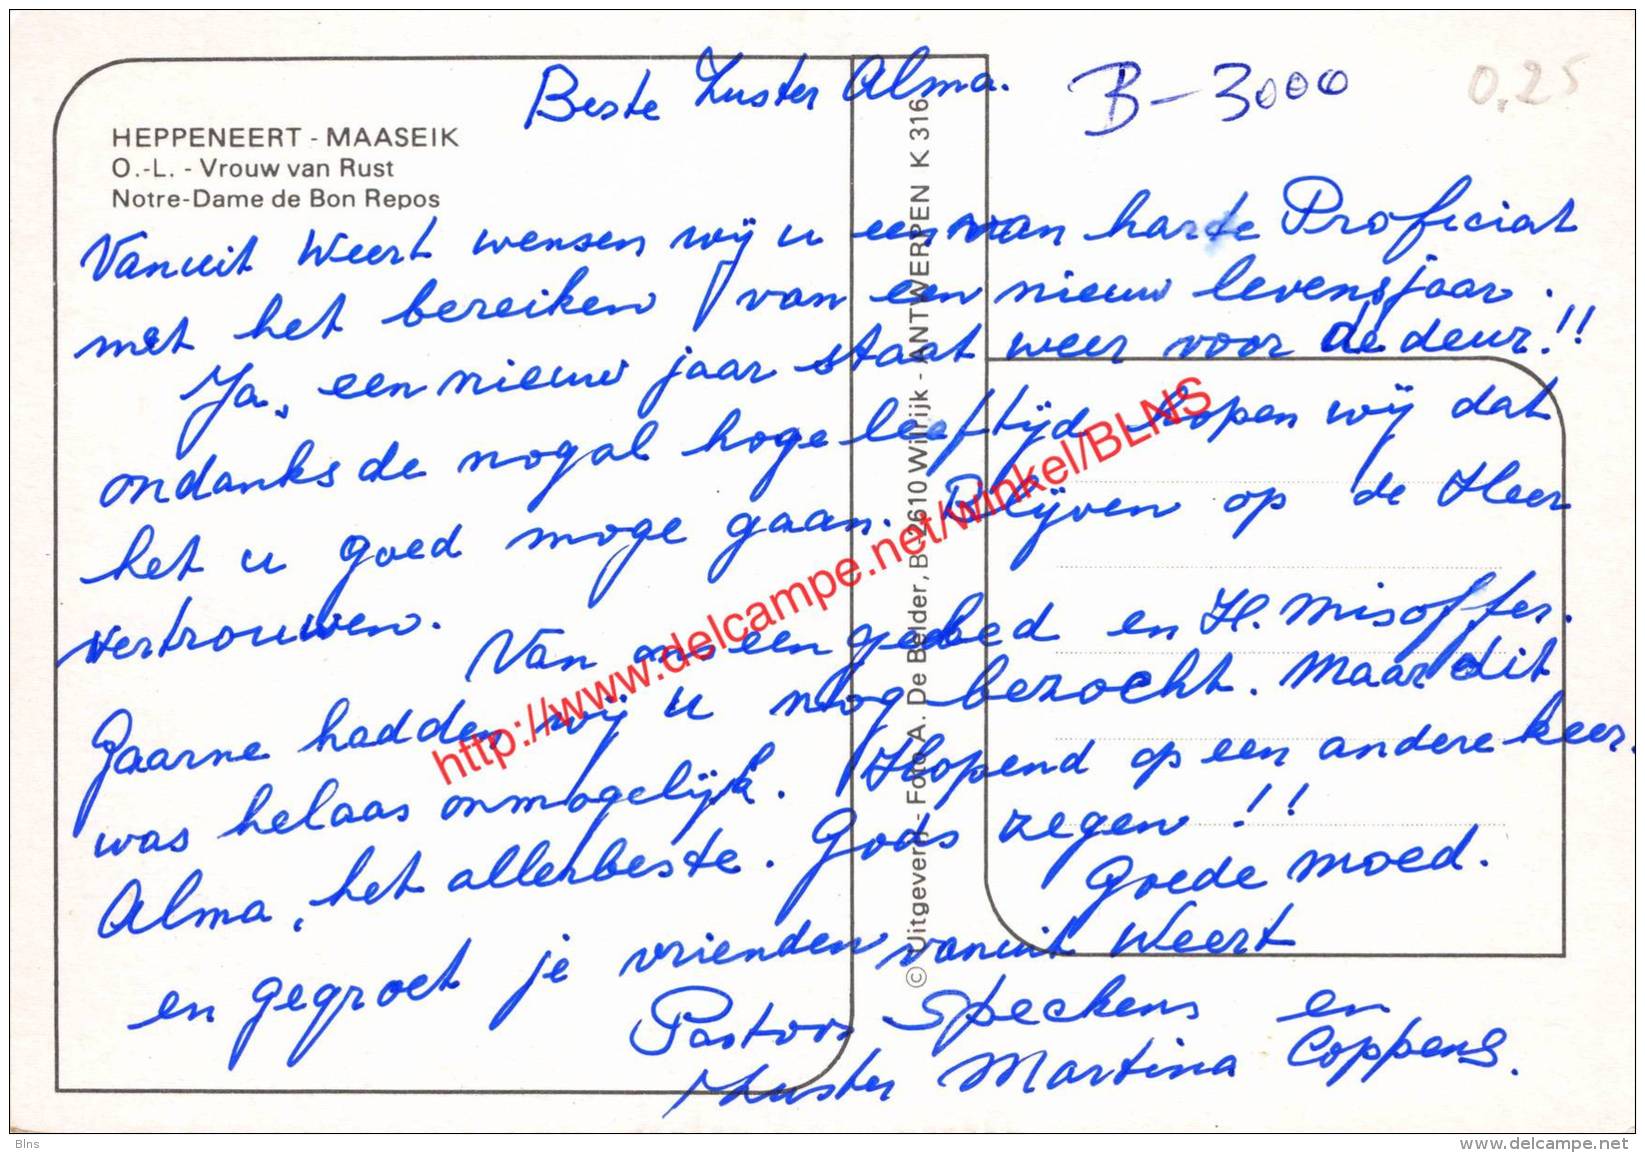 Beste Zuster Alma.
B-3000
0,25
HEPPENEERT - MAASEIK
O.-L. - Vrouw van Rust
Notre-Dame de Bon Repos
Vanuit Weert wensen wij u een van harte Proficiat
met het bereiken van een nieuw levensjaar.
Ja, een nieuw jaar staat weer voor de deur!!
ondanks de nogal hoge leeftijd hopen wij dat
het u goed moge gaan. Blijven op de Heer
vertrouwen.
Van ons een gebed en H. Misoffer.
Gaarne hadden wij u nog bezocht. Maar dit
was helaas onmogelijk. Hopend op een andere keer.
Alma, het allerbeste. Gods zegen!!
Goede moed.
en gegroet je vrienden vanuit Weert
Pastoor Speckens en
Zuster Martina Coppens.
© Uitgeverij - Foto A. De Belder, B-2610 Wilrijk - ANTWERPEN K 316
http://www.delcampe.net/winkel/BLNS
Blns
www.delcampe.net